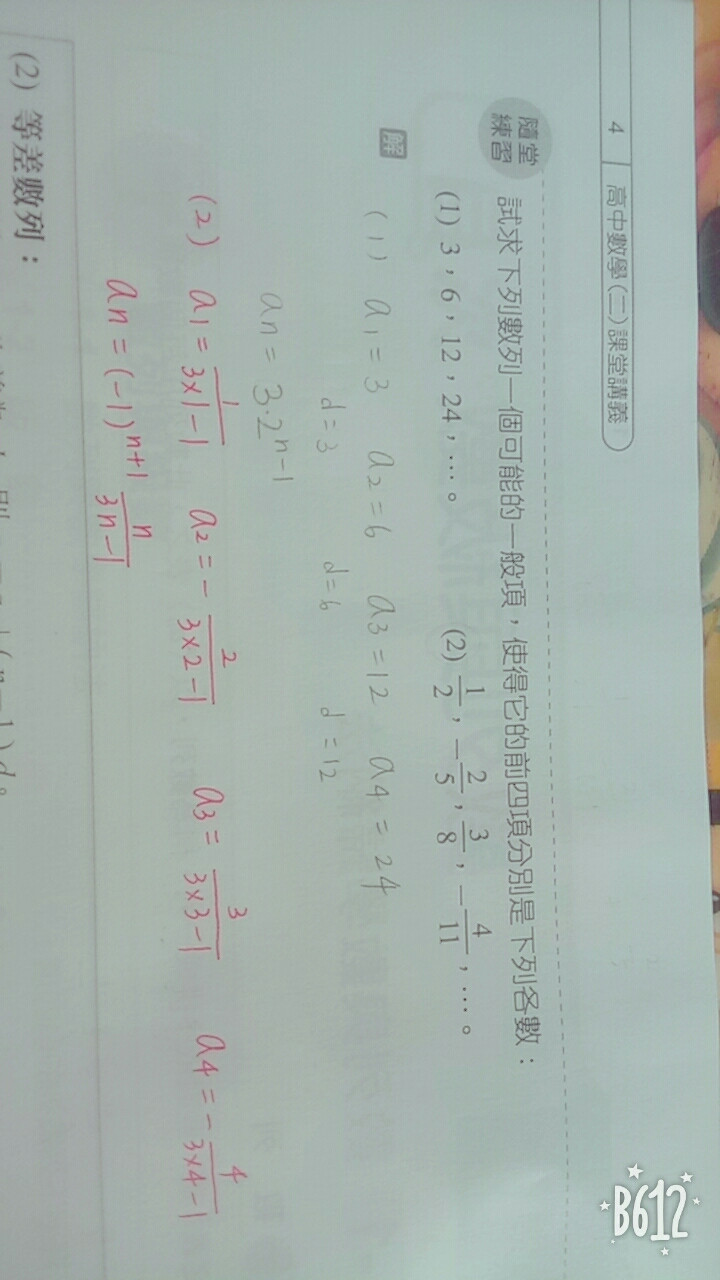 4 高中數學(二)課堂講義
隨堂練習 試求下列數列一個可能的一般項，使得它的前四項分別是下列各數：
(1) 3，6，12，24，…。 (2) 1/2，−2/5，3/8，−4/11，…。
解 (1) a1=3 a2=6 a3=12 a4=24
d=3 d=6 d=12
an=3·2^(n-1)
(2) a1=1/(3×1-1) a2=-2/(3×2-1) a3=3/(3×3-1) a4=-4/(3×4-1)
an=(-1)^(n+1) n/(3n-1)
(2) 等差數列：
(n−1)d。
B612